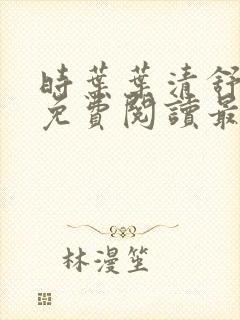 時葉葉清舒
免費閱讀最
林漫笙